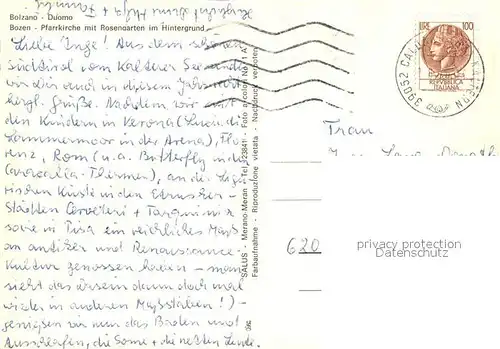 Bolzano - Duomo
Bozen - Pfarrkirche mit Rosengarten im Hintergrund
Liebe Inge! Aus dem schönen
Südtirol vom Kalterer See senden
wir dir auch in diesem Jahr
herzl. Grüße. Nachdem wir mit
den Kindern in Verona (Lucia di
Lammermoor in der Arena), Flo-
renz, Rom (u.a. Butterfly in den
Caracalla-Thermen), an der Ligu-
rischen Küste in den Etrusker-
Städten Cerveteri + Tarquinia
sowie in Pisa ein reichliches Maß
an antiker und Renaissance-
Kultur genossen haben - man
sieht das
wieder in anderen Maßstäben!) -
genießen wir nun das Baden und
Ausschlafen, die Sonne + die netten Leute.
"SALUS" - Merano-Meran + Tel. 23841 - Foto a colori
Farbaufnahme - Riproduzione vietata - Nachdruck verboten
LIRE 100
REPUBBLICA
ITALIANA
39052
Frau
620
privacy protection
Datenschutz